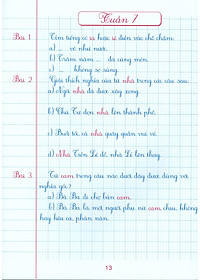 Tuần 7
Bài 1 Tìm tiếng có ia hoặc iê điền vào chỗ chấm.
a) ... về như nước.
b) Trăm năm ... đá cũng mòn.
c) ... không sợ súng.
Bài 2 Giải thích nghĩa của từ nhà trong các câu sau:
a) Ngôi nhà đã được xây xong.
b) Chú Tư dọn nhà lên thành phố.
c) Buổi tối cả nhà quây quần vui vẻ.
d) Nhà Tiền Lê đổ, nhà Lí lên thay.
Bài 3 Từ cam trong câu nào dưới đây được dùng với
nghĩa gốc?
a) Bà Ba đi chợ bán cam.
b) Bà Ba là một người phụ nữ cam chịu, không
hay kêu ca, phàn nàn.
13